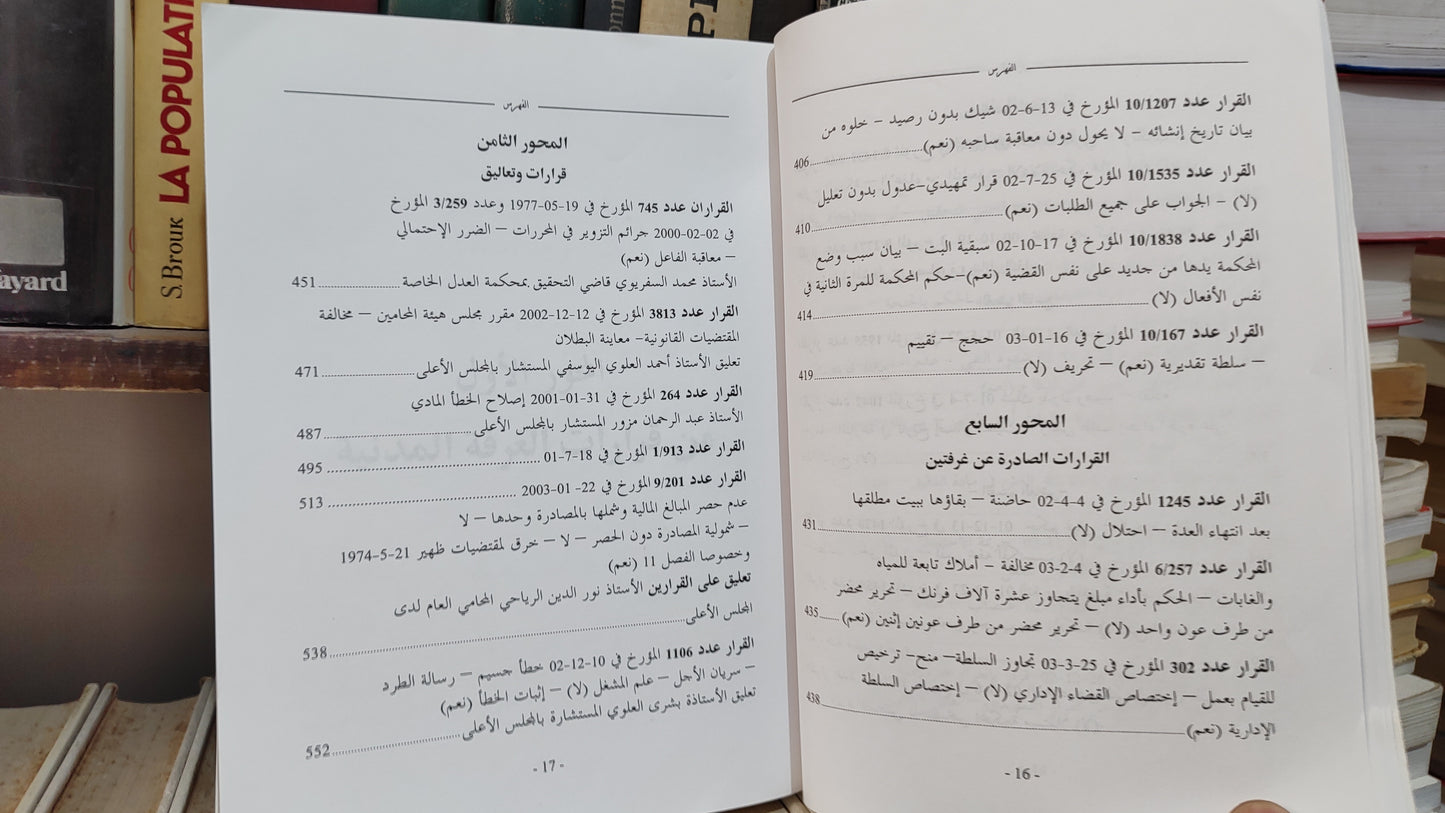 الفهرس
القرار عدد 10/1207 المؤرخ في 13-6-02 شيك بدون رصيد – خلوه من
بيان تاريخ إنشائه – لا يحول دون معاقبة ساحبه (نعم)....................406
القرار عدد 10/1535 المؤرخ في 25-7-02 قرار تمهيدي-عدول بدون تعليل
(لا) – الجواب على جميع الطلبات (نعم)....................410
القرار عدد 10/1838 المؤرخ في 17-10-02 سبقية البت – بيان سبب وضع
المحكمة يدها من جديد على نفس القضية (نعم)–حكم المحكمة للمرة الثانية في
نفس الأفعال (لا) ....................414
القرار عدد 10/167 المؤرخ في 16-01-03 حجج – تقييم
– سلطة تقديرية (نعم) – تحريف (لا) ....................419
المحور السابع
القرارات الصادرة عن غرفتين
القرار عدد 1245 المؤرخ في 4-4-02 حاضنة – بقاؤها ببيت مطلقها
بعد انتهاء العدة – احتلال (لا)....................431
القرار عدد 6/257 المؤرخ في 4-2-03 مخالفة – أملاك تابعة للمياه
والغابات – الحكم بأداء مبلغ يتجاوز عشرة آلاف فرنك – تحرير محضر
من طرف عون واحد (لا) – تحرير محضر من طرف عونين إثنين (نعم)......435
القرار عدد 302 المؤرخ في 25-3-03 تجاوز السلطة– منح- ترخيص
للقيام بعمل – إختصاص القضاء الإداري (لا) – إختصاص السلطة
الإدارية (نعم)....................438
- 16 -
الفهرس
المحور الثامن
قرارات وتعاليق
القراران عدد 745 المؤرخ في 19-05-1977 وعدد 3/259 المؤرخ
في 02-02-2000 جرائم التزوير في المحررات – الضرر الإحتمالي
– معاقبة الفاعل (نعم)
الأستاذ محمد السفريوي قاضي التحقيق بمحكمة العدل الخاصة....................451
القرار عدد 3813 المؤرخ في 12-12-2002 مقرر مجلس هيئة المحامين – مخالفة
المقتضيات القانونية– معاينة البطلان
تعليق الأستاذ أحمد العلوي اليوسفي المستشار بالمجلس الأعلى....................471
القرار عدد 264 المؤرخ في 31-01-2001 إصلاح الخطأ المادي
الأستاذ عبد الرحمان مزور المستشار بالمجلس الأعلى....................487
القرار عدد 1/913 المؤرخ في 18-7-01 ....................495
القرار عدد 9/201 المؤرخ في 22- 01-2003 ....................513
عدم حصر المبالغ المالية وشملها بالمصادرة وحدها – لا
– شمولية المصادرة دون الحصر – لا – خرق لمقتضيات ظهير 21-5-1974
وخصوصا الفصل 11 (نعم)
تعليق على القرارين الأستاذ نور الدين الرياحي المحامي العام لدى
المجلس الأعلى....................538
القرار عدد 1106 المؤرخ في 10-12-02 خطأ جسيم – رسالة الطرد
– سريان الأجل – علم المشغل (لا) – إثبات الخطأ (نعم)
تعليق الأستاذة بشرى العلوي المستشارة بالمجلس الأعلى....................552
- 17 -
ayard
S. BROUK LA POPULATI